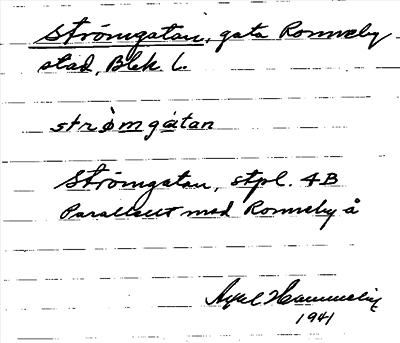 Strömgatan, gata Ronneby
stad, Blek. l.
strömgatan
Strömgatan, stpl. 4B
Parallellt med Ronneby å
Axel
1941